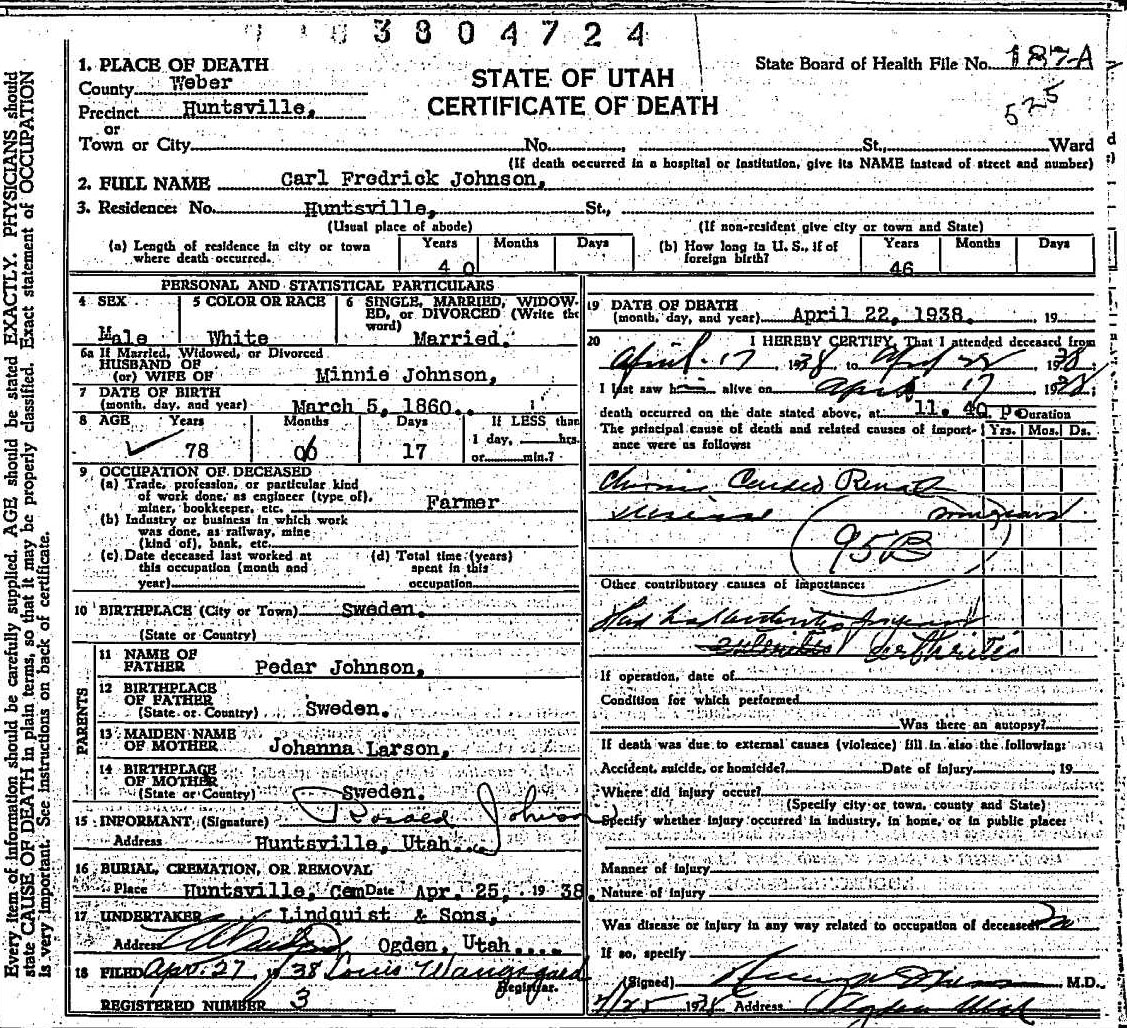 3804724
1. PLACE OF DEATH
County Weber
Precinct Huntsville,
or
Town or City No. St., Ward
STATE OF UTAH
CERTIFICATE OF DEATH
State Board of Health File No. 187-A
525
(If death occurred in a hospital or institution, give its NAME instead of street and number)
2. FULL NAME Carl Fredrick Johnson,
3. Residence: No. Huntsville, St.,
(Usual place of abode) (If non-resident give city or town and State)
(a) Length of residence in city or town where death occurred. Years 40 Months Days
(b) How long in U. S., if of foreign birth? Years 46 Months Days
PERSONAL AND STATISTICAL PARTICULARS
4 SEX Male
5 COLOR OR RACE White
6 SINGLE, MARRIED, WIDOWED, or DIVORCED (Write the word) Married.
6a If Married, Widowed, or Divorced
HUSBAND OF
(or) WIFE OF Minnie Johnson,
7 DATE OF BIRTH
(month, day, and year) March 5, 1860.
8 AGE Years 78 Months 06 Days 17 If LESS than 1 day, hrs. or min.?
9 OCCUPATION OF DECEASED
(a) Trade, profession, or particular kind of work done, as engineer (type of), miner, bookkeeper, etc. Farmer
(b) Industry or business in which work was done, as railway, mine (kind of), bank, etc.
(c) Date deceased last worked at this occupation (month and year)
(d) Total time (years) spent in this occupation
10 BIRTHPLACE (City or Town) Sweden.
(State or Country)
PARENTS
11 NAME OF FATHER Pedar Johnson,
12 BIRTHPLACE OF FATHER (State or Country) Sweden.
13 MAIDEN NAME OF MOTHER Johanna Larson,
14 BIRTHPLACE OF MOTHER (State or Country) Sweden.
15 INFORMANT (Signature) Johnson
Address Huntsville, Utah..
16 BURIAL, CREMATION, OR REMOVAL
Place Huntsville, Cem Date Apr. 25, 1938.
17 UNDERTAKER Lindquist & Sons,
Address Ogden, Utah....
18 FILED Apr. 27, 1938 Louis Wangsgaard
Registrar.
REGISTERED NUMBER 3
19 DATE OF DEATH
(month, day, and year) April 22, 1938. 19
20 I HEREBY CERTIFY, That I attended deceased from
April 17 1938 to Apr 22 1938
I last saw h alive on April 17 1938;
death occurred on the date stated above, at 11.40 p. Duration
The principal cause of death and related causes of importance were as follows: Yrs. Mos. Ds.
Chronic Cardio Renal
disease
95B
Other contributory causes of importance:
arthritis
If operation, date of
Condition for which performed
Was there an autopsy?
If death was due to external causes (violence) fill in also the following:
Accident, suicide, or homicide? Date of Injury 19
Where did injury occur?
(Specify city or town, county and State)
Specify whether injury occurred in industry, in home, or in public place:
Manner of injury
Nature of injury
Was disease or injury in any way related to occupation of deceased? No
If so, specify
(Signed) M.D.
4/25 1938 Address Ogden Utah
Every item of information should be carefully supplied. AGE should be stated EXACTLY. PHYSICIANS should
state CAUSE OF DEATH in plain terms, so that it may be properly classified. Exact statement of OCCUPATION
is very important. See instructions on back of certificate.